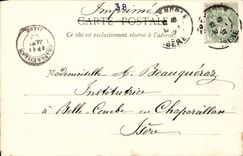 38
Imprimé
CARTE POSTALE
Ce côté est exclusivement réservé à l'adresse
ISÈRE
Mademoiselle M. Beauquéraz
Institutrice
à Belle Combe au Chapareillan
Isère